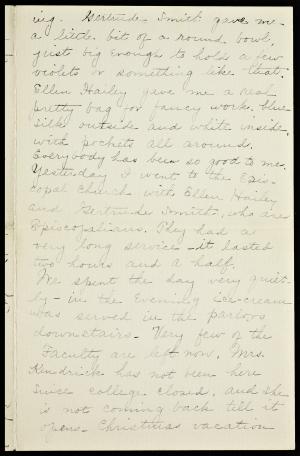 ing. Gertrude Smith gave me
a little bit of a round bowl,
just big enough to hold a few
violets or something like that.
Ellen Hailey gave me a real
pretty bag for fancy work, blue
silk outside and white inside,
with pockets all around.
Everybody has been so good to me.
Yesterday I went to the Epis-
copal Church with Ellen Hailey
and Gertrude Smith, who are
Episcopalians. They had a
very long service - it lasted
two hours and a half.
We spent the day very quiet-
ly - in the evening ice-cream
was served in the parlors
downstairs. Very few of the
Faculty are left now. Mrs.
Kendrick has not been here
since college closed, and she
is not coming back till it
opens. Christmas vacation